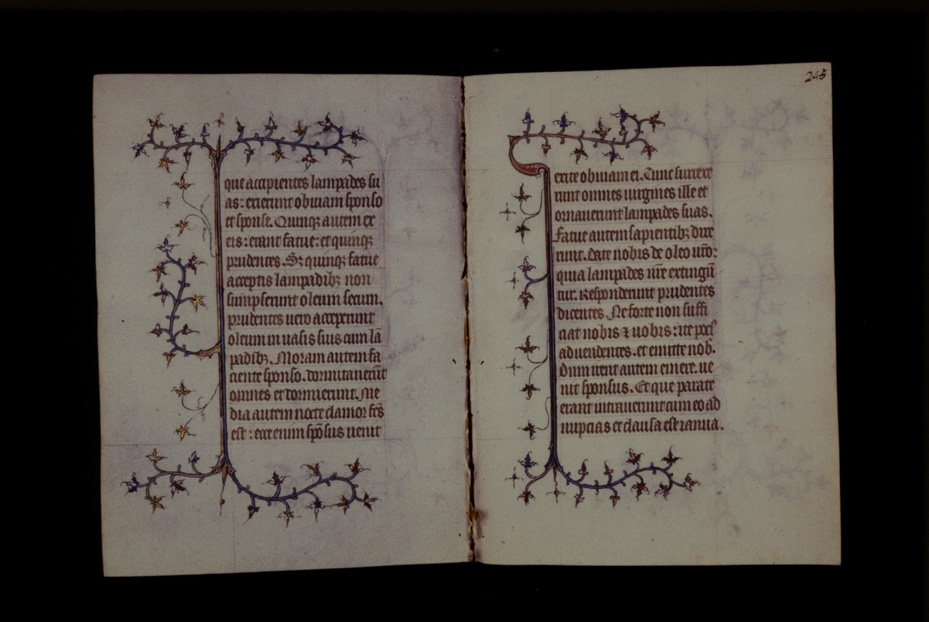 que accipientes lampades su
as: exierunt obuiam sponso
et sponse. Quinqʒ autem ex
eis: erant fatue: et quinqʒ
prudentes. Sʒ quinqʒ fatue
acceptis lampadibʒ non
sumpserunt oleum secum.
prudentes uero acceperunt
oleum in uasis suis cum lā
padibʒ. Moram autem fa
ciente sponso. dormitauerūt
omnes et dormierunt. Me
dia autem nocte clamor fc̄s
est: ecce enim spōsus uenit
245
exite obuiam ei. Tunc surrexe
runt omnes uirgines ille et
ornauerunt lampades suas.
Fatue autem sapientibʒ dixe
runt. date nobis de oleo ur̄o:
quia lampades nr̄e extingū
tur. Responderunt prudentes
dicentes. Ne forte non suffi
ciat nobis ⁊ uobis: ite
ad uendentes. et emite nob.
Dum irent autem emere. ue
nit sponsus. Et que parate
erant intrauerunt cum eo ad
nupcias et clausa est ianua.